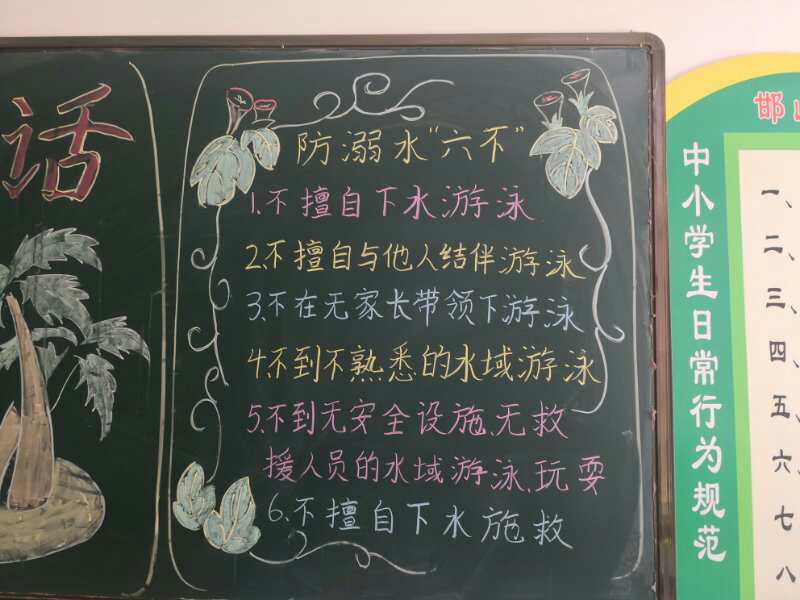 话
防溺水"六不"
1.不擅自下水游泳
2.不擅自与他人结伴游泳
3.不在无家长带领下游泳
4.不到不熟悉的水域游泳
5.不到无安全设施、无救
援人员的水域游泳、玩耍
6.不擅自下水施救
邯
中小学生日常行为规范
一、
二、
三、
四、
五、
六、
七、
八